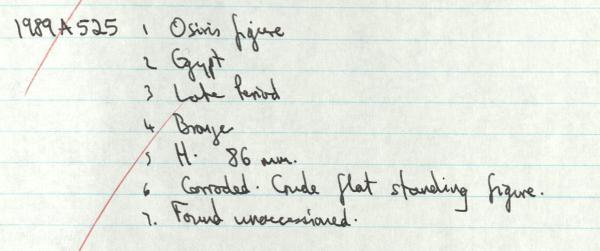 1989A525 1 Osiris figure
2 Egypt
3 Late Period
4 Bronze
5 H. 86 mm.
6 Corroded. Crude flat standing figure.
7. Found unaccessioned.